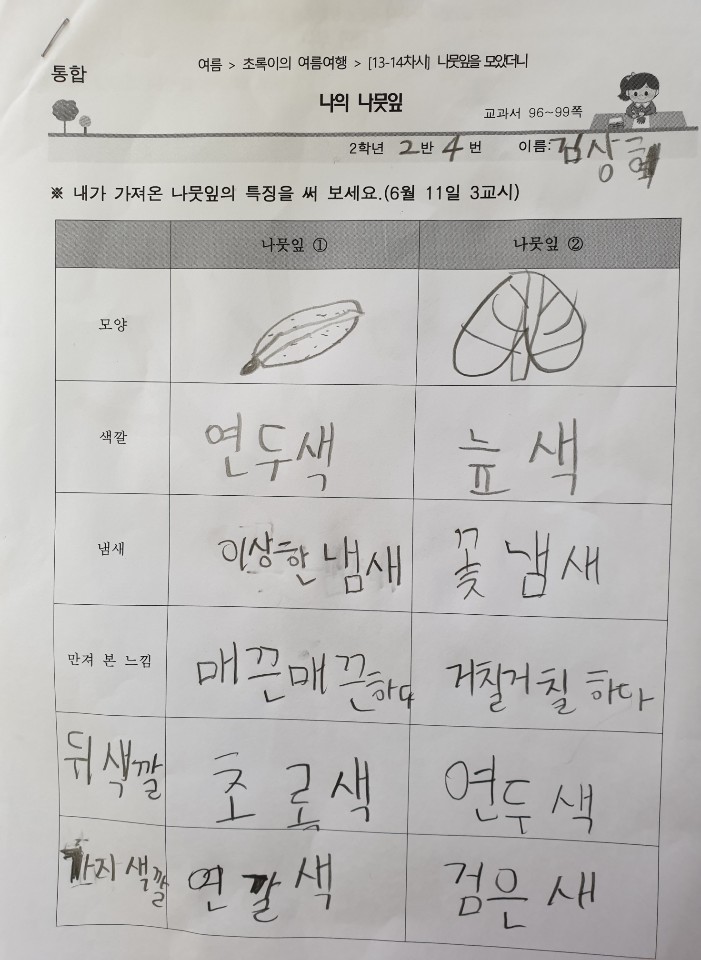 여름 > 초록이의 여름여행 > [13-14차시] 나뭇잎을 모았더니
통합
나의 나뭇잎
교과서 96~99쪽
2학년 2반 4번 이름: 김상혁
※ 내가 가져온 나뭇잎의 특징을 써 보세요.(6월 11일 3교시)
나뭇잎 ① 나뭇잎 ②
모양
색깔 연두색 늎색
냄새 이상한 냄새 꽃 냄새
만져 본 느낌 매끈매끈하다 거칠거칠하다
뒤색깔 초록색 연두색
가지색깔 연갈색 검은새